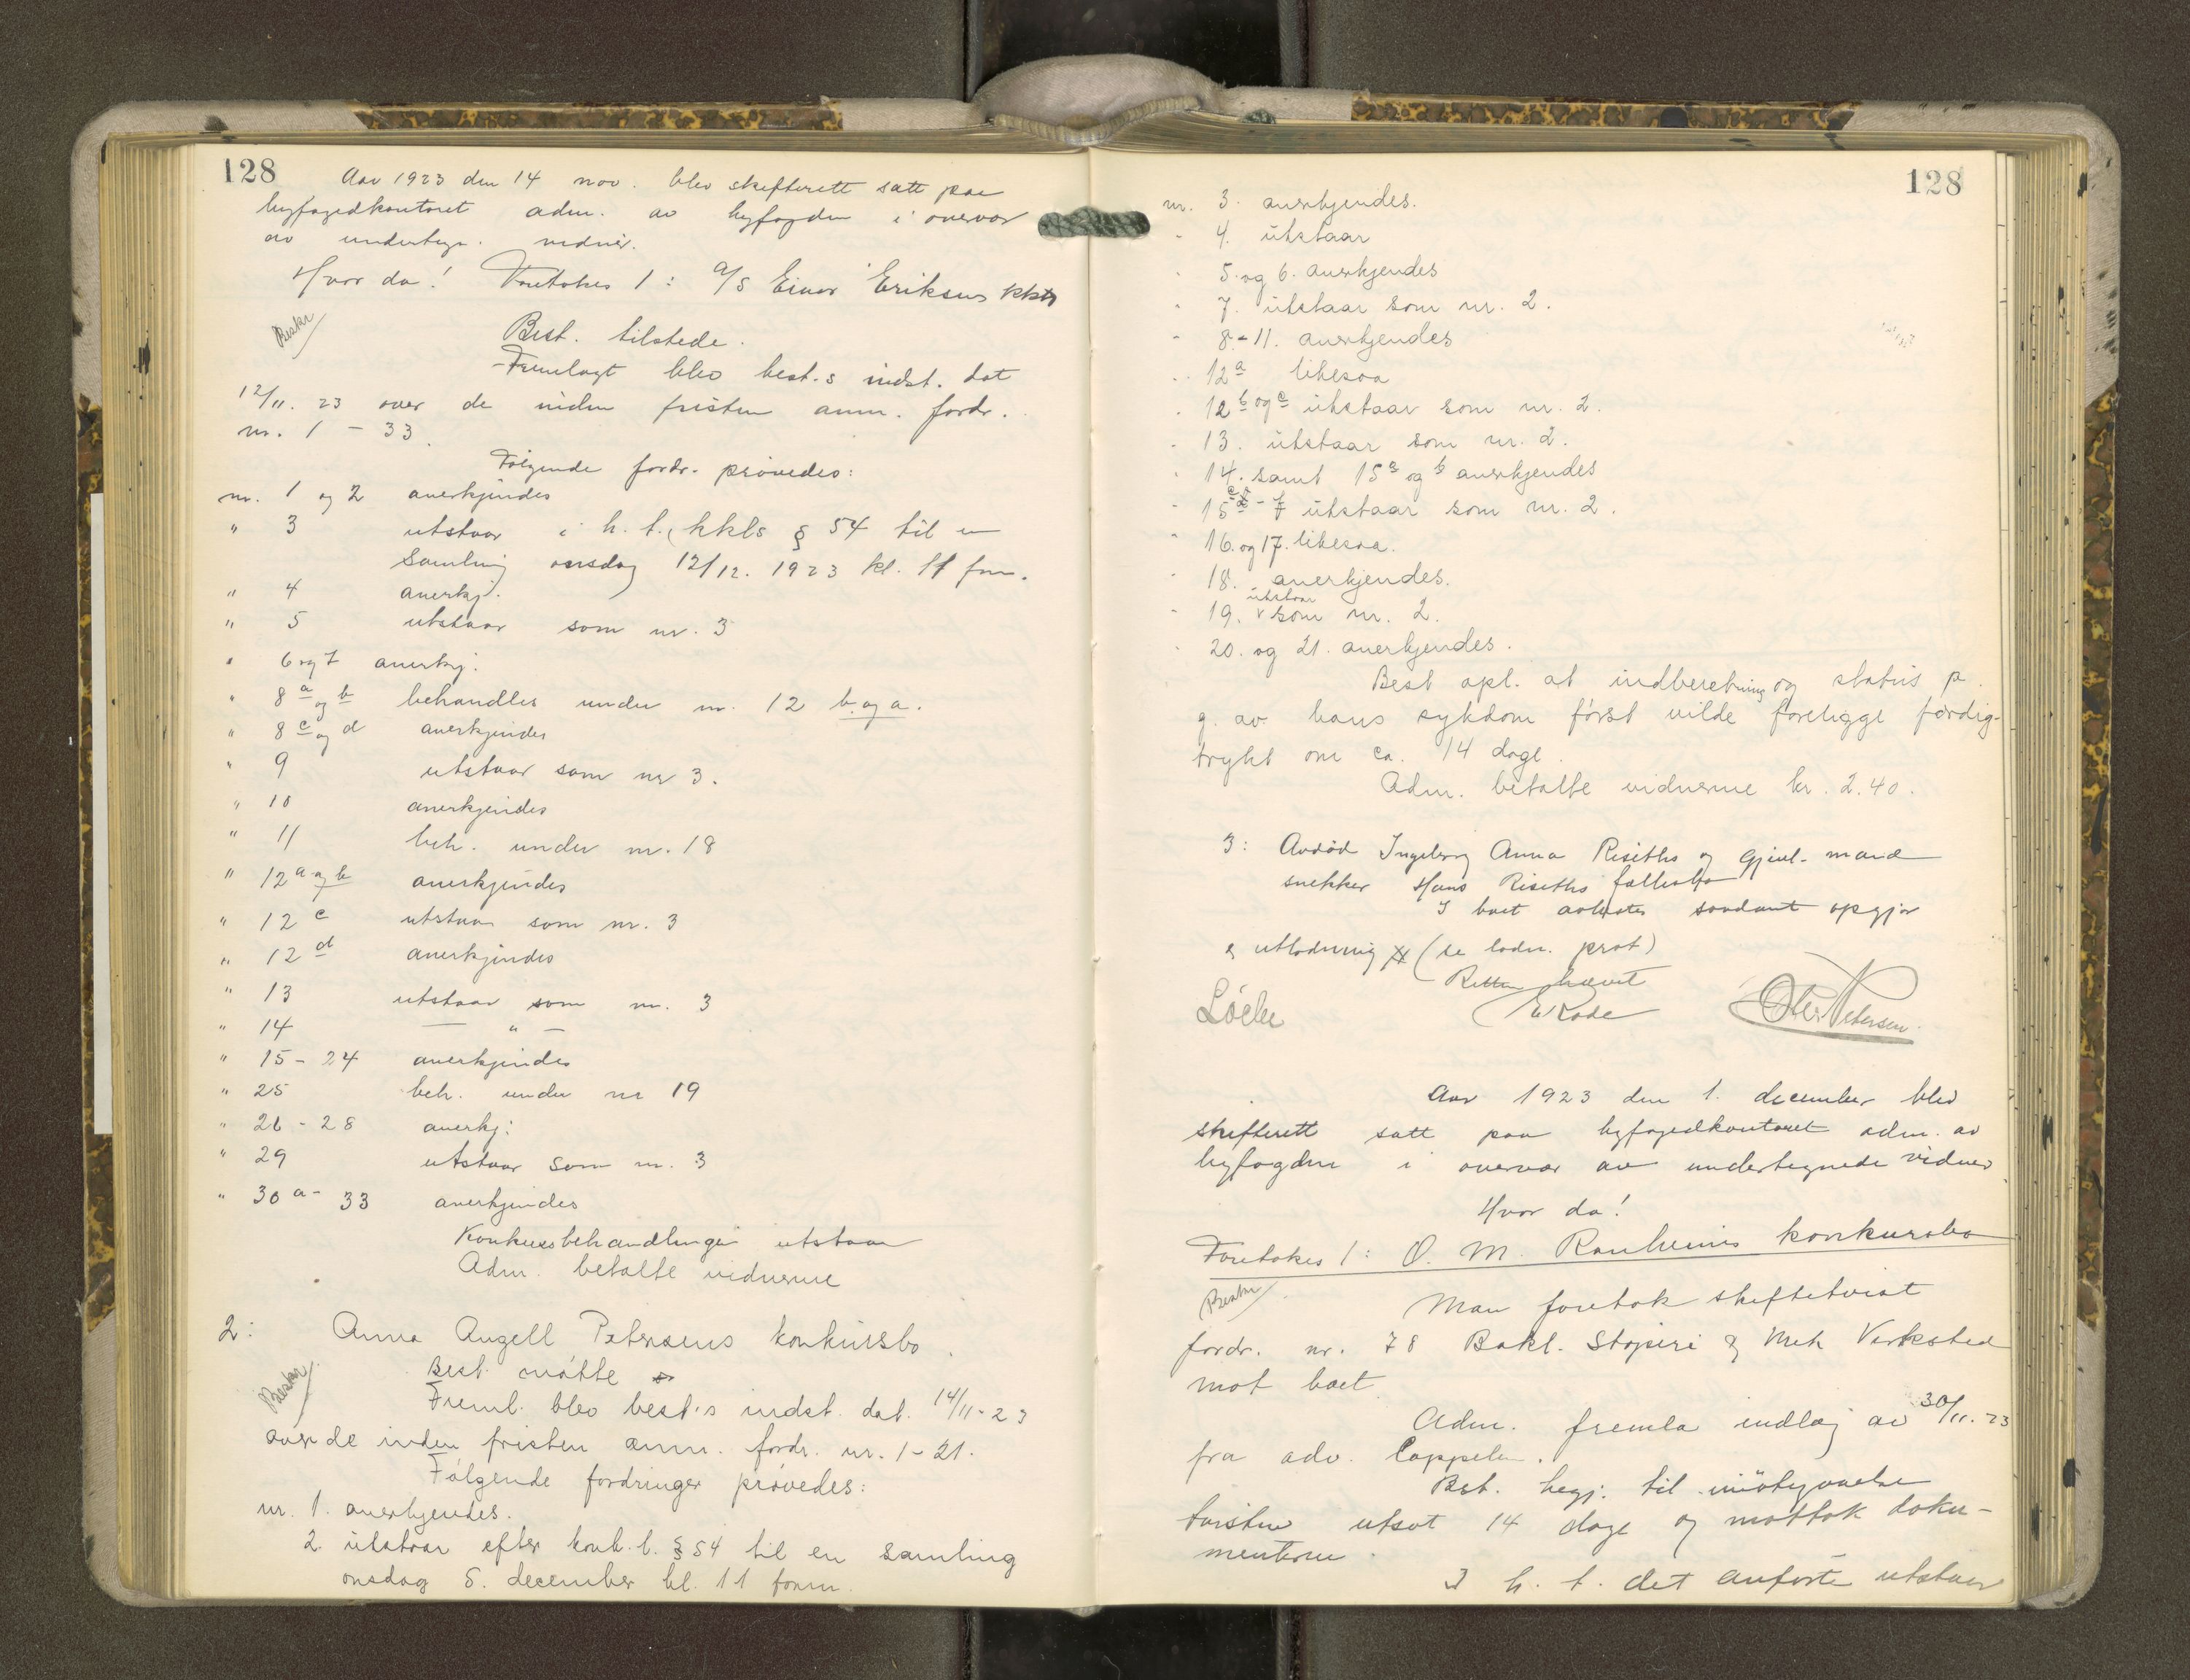 128
Aar 1923 den 14 nov. blev skifterett satt paa
byfogedkontoret adm. av byfogden i overvær
av undertegn. vidner.
Hvor da! Foretokes 1: A/S Einar Eriksens kkbo
Beskr
Best. tilstede.
Fremlagt blev best.s indst. dat
12/11. 23 over de inden fristen anm. fordr.
nr. 1 - 33.
Følgende fordr. prøvedes:
nr. 1 og 2 anerkjendes
" 3 utstaar i h. t. kkls § 54 til en
Samling onsdag 12/12. 1923 kl. 11 fm.
" 4 anerkj.
" 5 utstaar som nr. 3
" 6 og 7 anerkj.
" 8 a og b behandles under nr. 12 b og a.
" 8 c og d anerkjendes
" 9 utstaar som nr 3.
" 10 anerkjendes
" 11 beh. under nr. 18
" 12 a og b anerkjendes
" 12 c utstaar som nr. 3
" 12 d anerkjendes
" 13 utstaar som nr. 3
" 14 — " —
" 15 - 24 anerkjendes
" 25 beh. under nr 19
" 26 - 28 anerkj:
" 29 utstaar som nr. 3
" 30 a - 33 anerkjendes
Konkursbehandlingen utstaar
Adm. betalte vidnerne
2: Anna Angell Petersens konkursbo.
Beskr
Best. møtte
Freml. blev best.s indst. dat. 14/11-23
over de inden fristen anm. fordr. nr. 1-21.
Følgende fordringer prøvedes:
nr. 1. anerkjendes.
2. utstaar efter konk.l. § 54 til en samling
onsdag 5. december kl. 11 form.
128
nr. 3. anerkjendes.
- 4. utstaar
- 5. og 6. anerkjendes
- 7. utstaar som nr. 2.
- 8 - 11. anerkjendes
- 12 a likesaa
- 12 b og c utstaar som nr. 2.
- 13. utstaar som nr. 2.
- 14. samt 15 a og b anerkjendes
- 15 c - f utstaar som nr. 2.
- 16. og 17. likesaa.
- 18. anerkjendes.
- 19. utstaar som nr. 2.
- 20. og 21. anerkjendes.
Best opl. at indberetning og status p.
g. av hans sykdom først vilde foreligge færdig-
trykt om ca. 14 dage.
Adm. betalte vidnerne kr. 2.40.
3: Avdød Ingeborg Anna Riseths og gjenl. mand
snekker Hans Riseths fællesbo
I boet avholdtes saadant opgjør
og utlodning (se lodn. prot)
Retten hævet
Løche
E Rode
Oles Petersen.
Aar 1923 den 1. december blev
skifterett satt paa byfogedkontoret adm. av
byfogden i overvær av undertegnede vidner
Hvor da!
Foretokes 1: O. M. Ranheims konkursbo
Beskr
Man foretok skiftetvist
fordr. nr. 78 Bakl. Støperi og Mek Verksted
mot boet.
Adm. fremla indlæg av 30/11. 23
fra adv. Cappelen.
Best. begj. til imøtegaaelse
tvisten utsat 14 dage og mottok doku-
menterne.
I h. t. det anførte utstaar